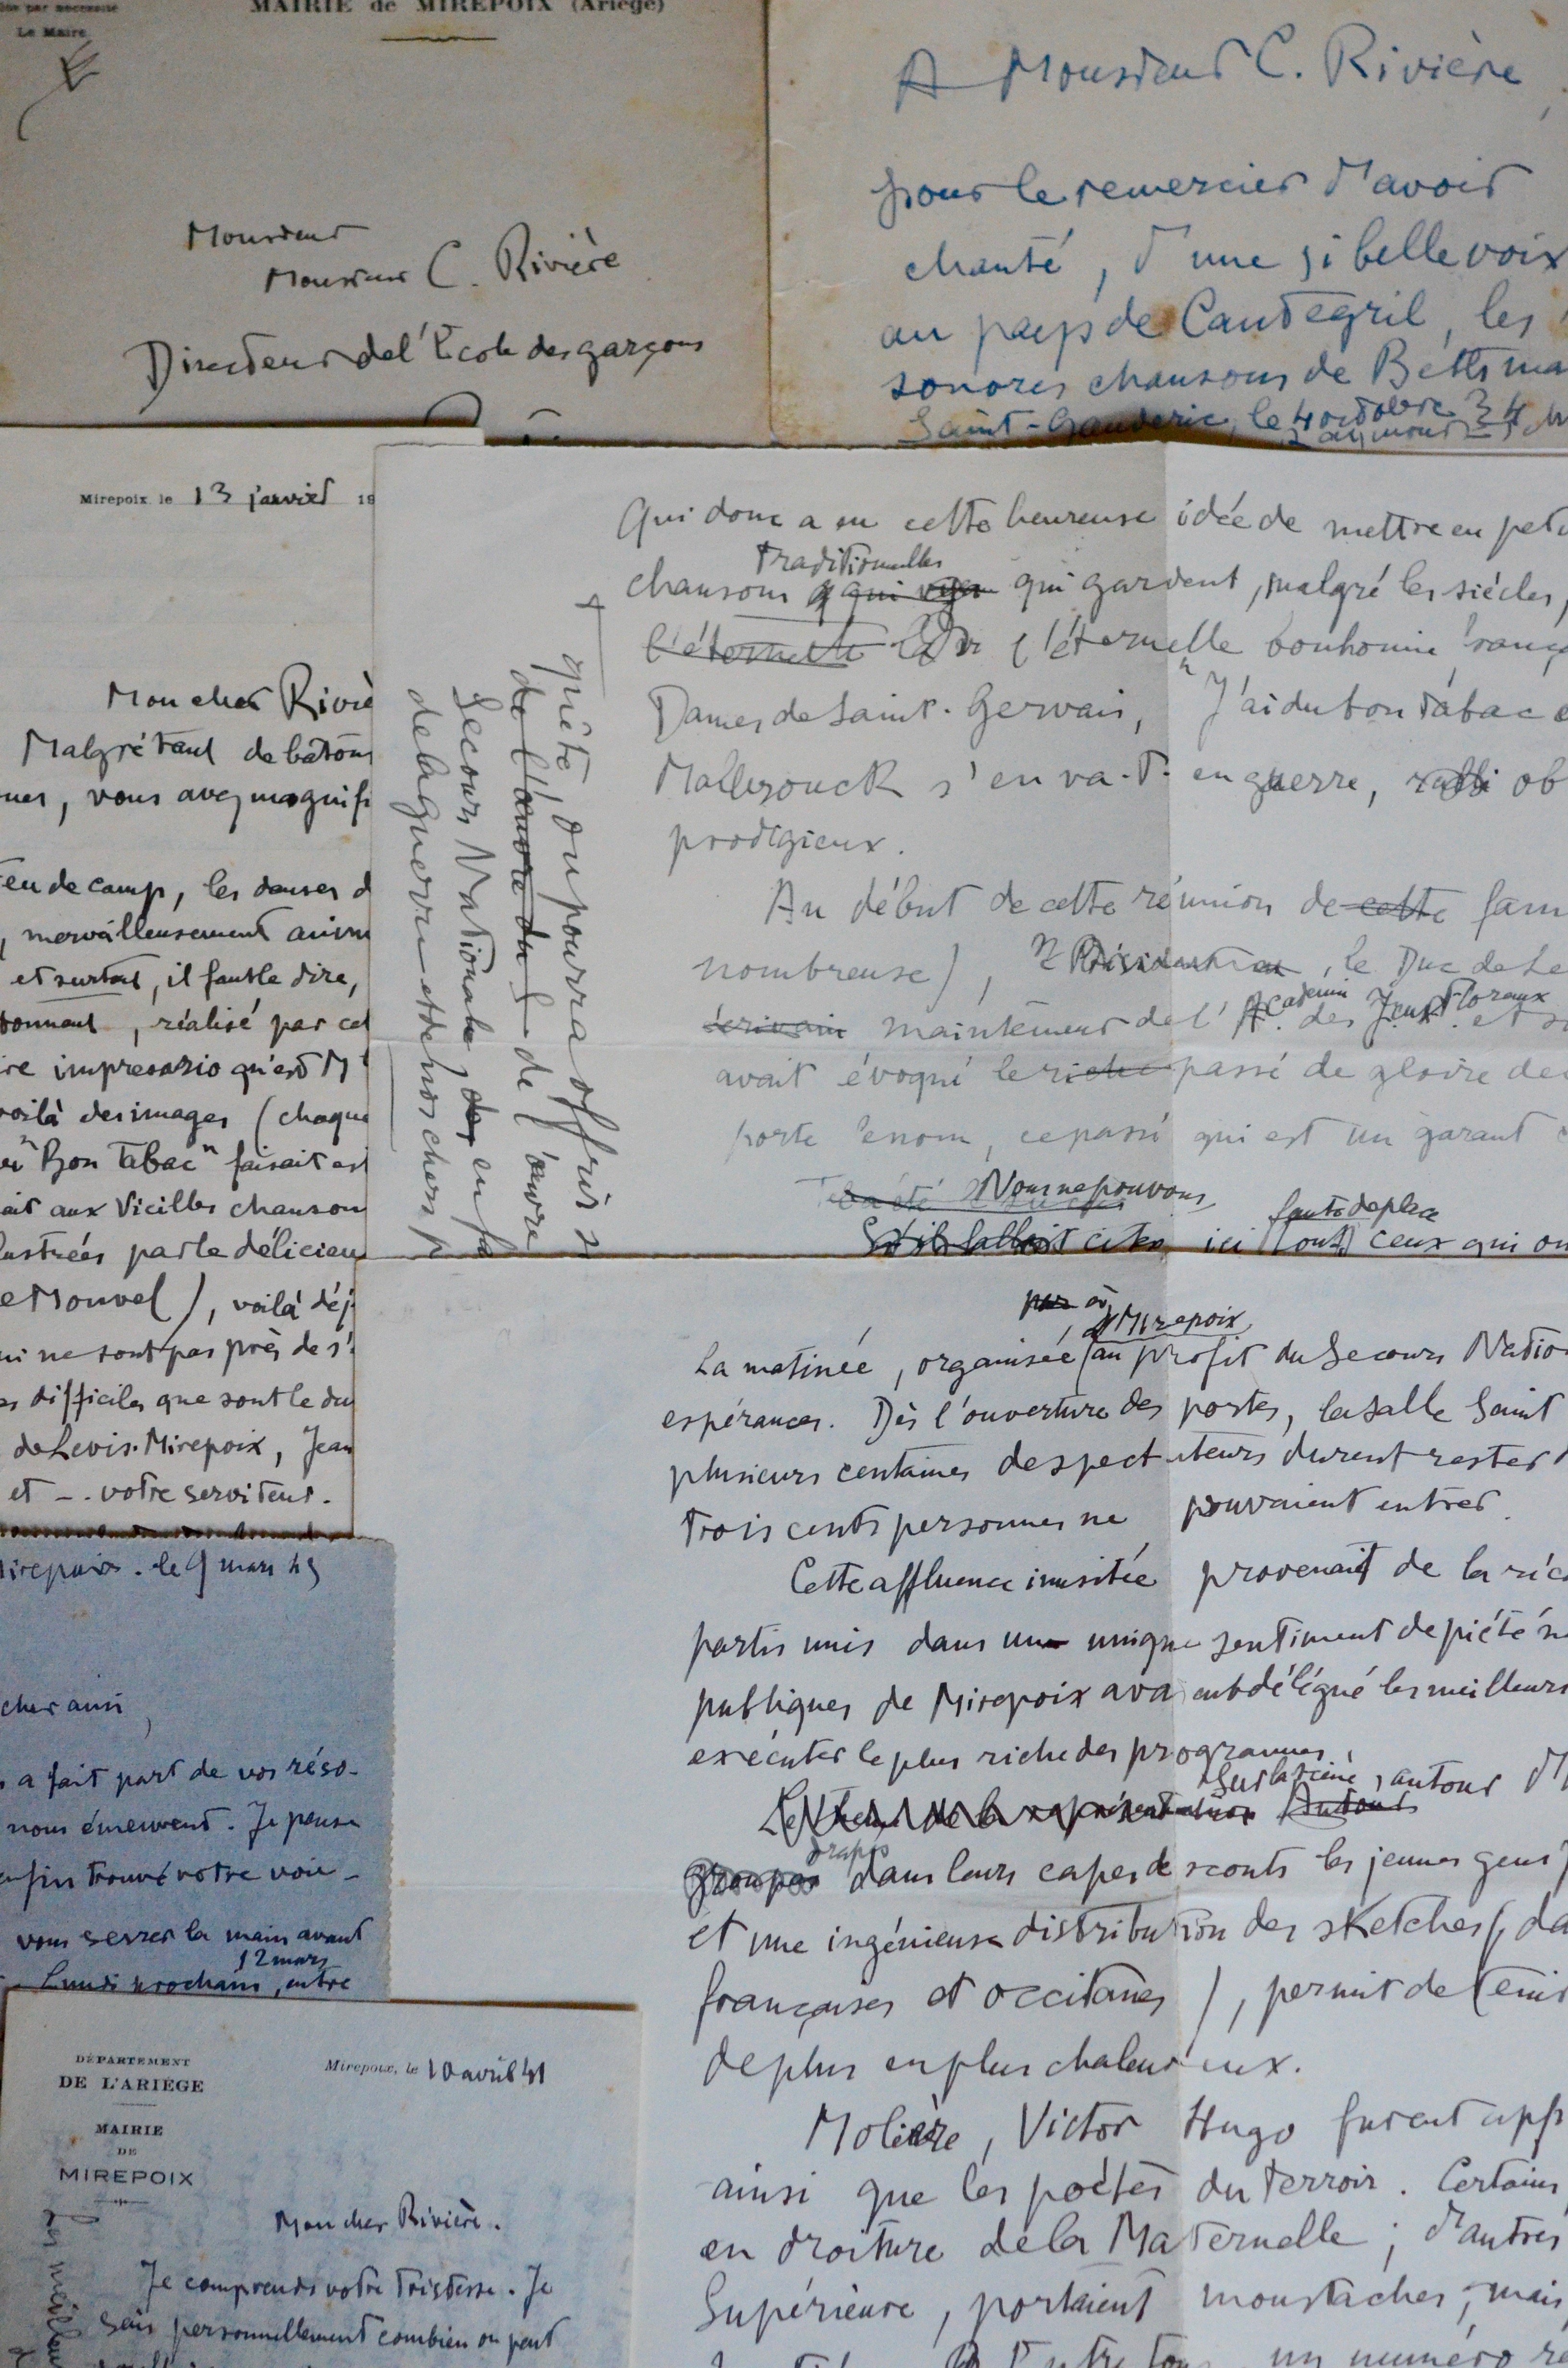 Le Maire
MAIRIE de MIREPOIX (Ariège)
Monsieur
Monsieur C. Rivière
Directeur de l'École des garçons
A Monsieur C. Rivière,
pour le remercier d'avoir
chanté, d'une si belle voix
au pays de Cantegril, les
sonores chansons de Bethma
Saint-Gauderic, le 4 octobre 34
Mirepoix, le 13 janvier 19
Mon cher Riviè
Malgré tant de bâtons
ues, vous avez magnifi
eu de camp, les danses d
, merveilleusement anim
et surtout, il faut le dire,
tonnant, réalisé par cet
re impresario qu'est M
voilà des images (chaque
"Bon Tabac" faisait est
ait aux Vieilles chanson
lustrées par le délicieu
e Monvel), voilà déj
ui ne sont pas près de s'
s difficiles que sont le du
de Levis-Mirepoix, Jean
et -. votre serviteur.
quête, on pourra offrir
de l'œuvre du de l'œuvre
Secours National, des en fa
de la guerre et de nos chers p
Qui donc a eu cette heureuse idée de mettre en peti
traditionnelles
chansons qui qui gardent, malgré les siècles,
l'éternelle l'éternelle bonhomie frança
Dames de Saint-Gervais, "J'ai du bon tabac
Malbrouck s'en va-t-en guerre, ob
prodigieux.
Au début de cette réunion de cette fam
nombreuse), , le Duc de Le
écrivain mainteneur de l'Academie des Jeux Floraux et
avait évoqué le riche passé de gloire de
porte le nom, ce passé qui est un garant
Nous ne pouvons
faute de place
S'il fallait citer ici tous ceux qui on
par à Mirepoix
La matinée, organisée au profit du Secours Natio
espérances. Dès l'ouverture des portes, la salle Saint
plusieurs centaines de spectateurs durent rester
trois cents personnes ne pouvaient entrer.
Cette affluence inusitée provenait de la
partis unis dans un unique sentiment de piété
publiques de Mirepoix avaient délégué les meilleurs
exécuter le plus riche des programmes.
Sur la scène, autour
de la représentation Autour
drapés
groupes dans leurs capes de scouts les jeunes gens
et une ingénieuse distribution des sketches (da
françaises et occitanes), permit de tenir
de plus en plus chaleureux.
Molière, Victor Hugo furent app
ainsi que les poètes du terroir. Certains
en droiture de la Maternelle ; d'autres
Supérieure, portaient moustaches ; mais
un numéro
irepoix. le 9 mars 45
cher ami,
a fait part de vos réso-
nous émeuvent. Je pense
nfin trouvé votre voie -
vous serrer la main avant
12 mars
Lundi prochain, entre
DÉPARTEMENT
DE L'ARIÉGE
MAIRIE
DE
MIREPOIX
Mirepoix, le 10 avril 41
Mon cher Rivière.
Je comprends votre tristesse. Je
sais personnellement combien on peut